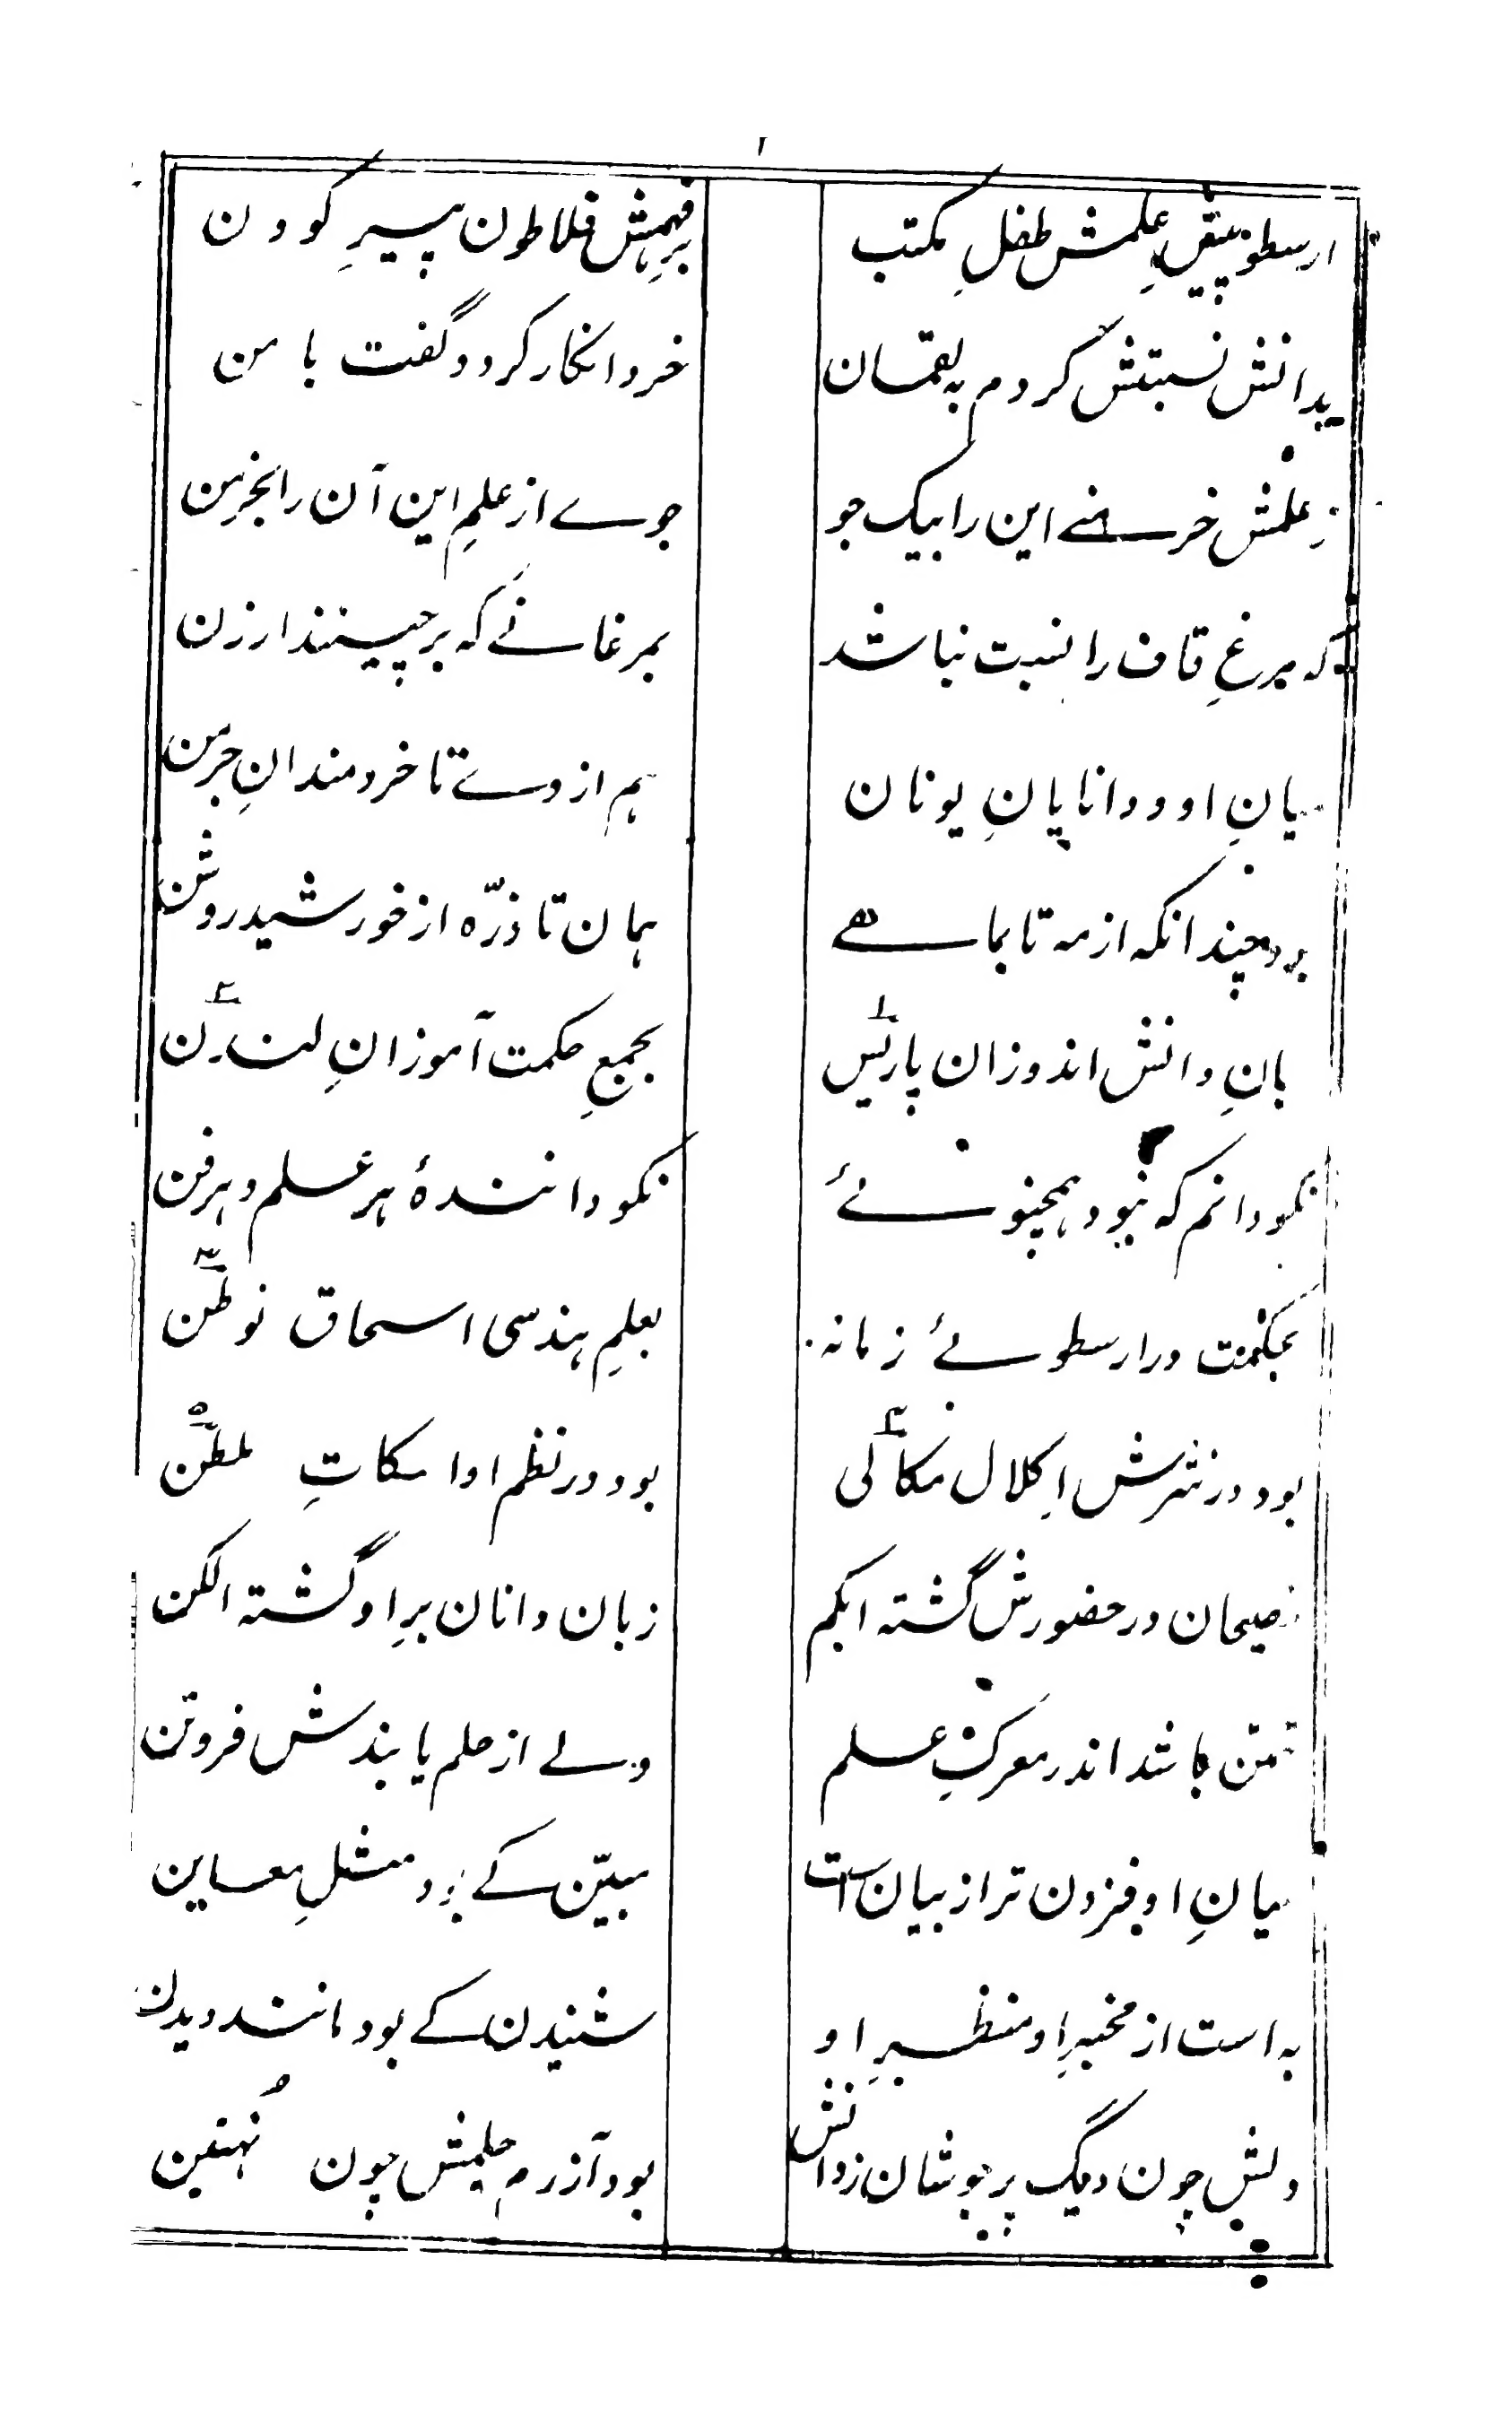 ارسطو پیشِ علمش طفلِ مکتب برِ فهمش فلاطون پیرِ کودن
بدانش نسبتش کردم به لقمان خرد انکار کرد و گفت با من
ز علمش خرمنے این را بیک جو جوے از علمِ این آن را بخرمن
که مرغِ قاف را نسبت نباشد بمرغانے که برچینند ارزن
میانِ او و دانایانِ یونان هم از وے تا خردمندانِ جرمن
بود چندانکه از مه تا بماهے همان تا ذرّه از خورشید روشن
دانش اندوزان پارِیس بجمعِ حکمت آموزانِ لندن
نکو دانم که نبود همچنوئے نکو دانندهٔ هر علم و هر فن
بحکمت در ارسطوئے زمانه بعلمِ هندسی اسحاق نوطن
بود در نثرش اِکلال مکالی بود در نظم او اسکاتِ ملطن
فصیحان در حضورش گشته ابکم زبان دانان برِ او گشته الکن
تهمتن باشد اندر معرکِ علم ولے از حلم یابندش فروتن
بیانِ او فزون تر از بیان است مبیّن کے بود مثلِ معاین
به است از مخبرِ او منظرِ او شنیدن کے بود مانند دیدن
دلش چون دیگ پر جوشان ز دانش بود آزرم حلمش چون نُهنبن